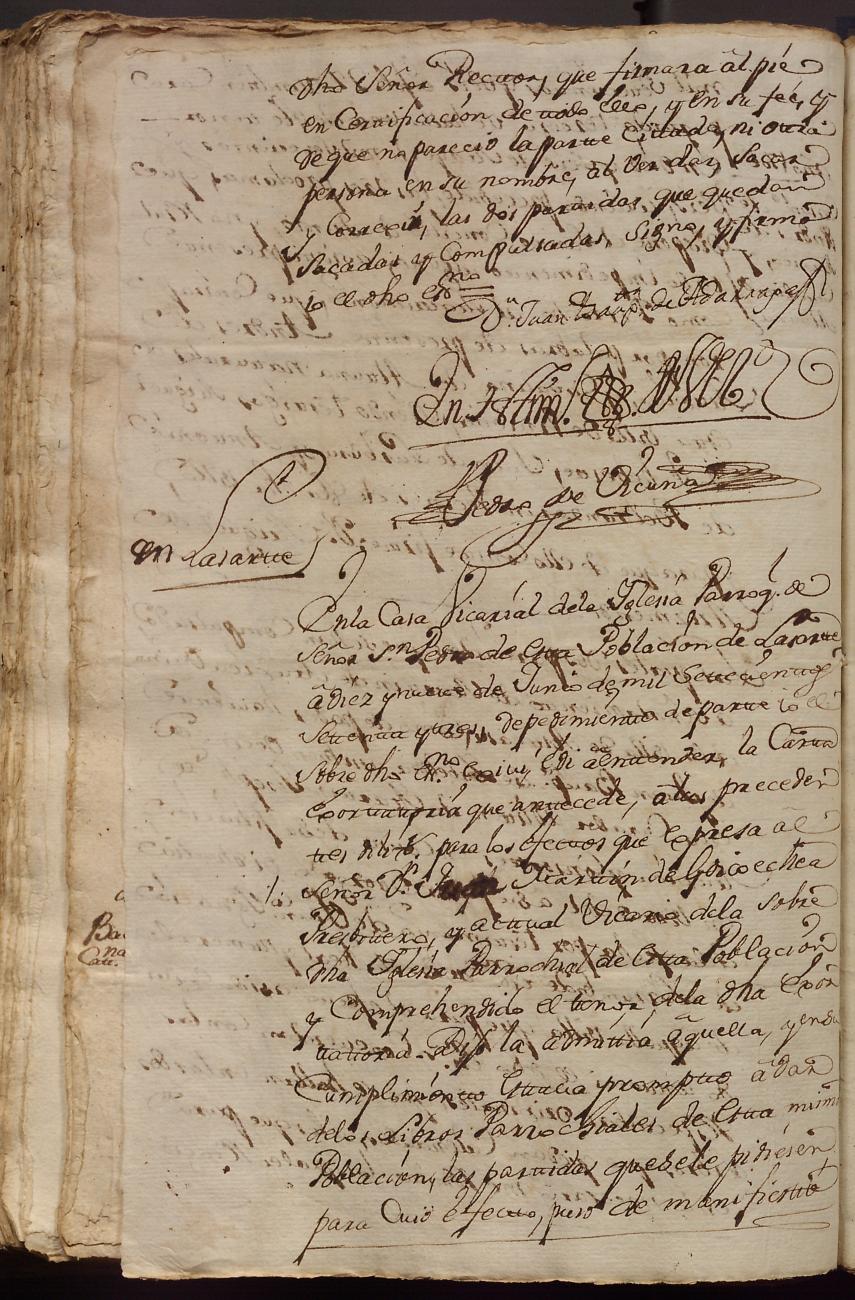 dho Señor Rector, que firmara al pie
en Certificación de todo ello, y en su fee, y
de que no pareció la parte Citada, ni otra
persona en su nombre, al Ver dar, Sacar
y Corregir, las dos partidas que quedan
Sacadas y Compulsadas, Signo, y firmo
io el dho essno
Dn. Juan Bauptta de Adarraga
En testim.
Pedro de Vicuña
en Lasarte
En la Casa Vicarial dela Iglesia Parroql. de
Señor Sn Pedro de esta Población de Lasarte
à diez y nueve de Junio de mil Setecientos
Setenta y tres, de pedimiento de parte io el
Sobre dho essno leí, è di à entender, la Carta
Exortatoria que antecede, à las preceden
tes dilixs. para los efectos que expresa al
Señor Dn. Martín de Goicoechea
Presbitero, y actual Vicario dela Sobre
dha Iglesia Parrochial de esta Población
y Comprehendido el tenor, dela dha Exor
tatoria Dijo la admitia àquella, y en su
Cumplimiento estava prompto à dar
delos Libros Parrochiales de esta misma
Población, las partidas que sele pidiesen
para Cuio efecto, puso de manifiesto
Ba
na
Cau.